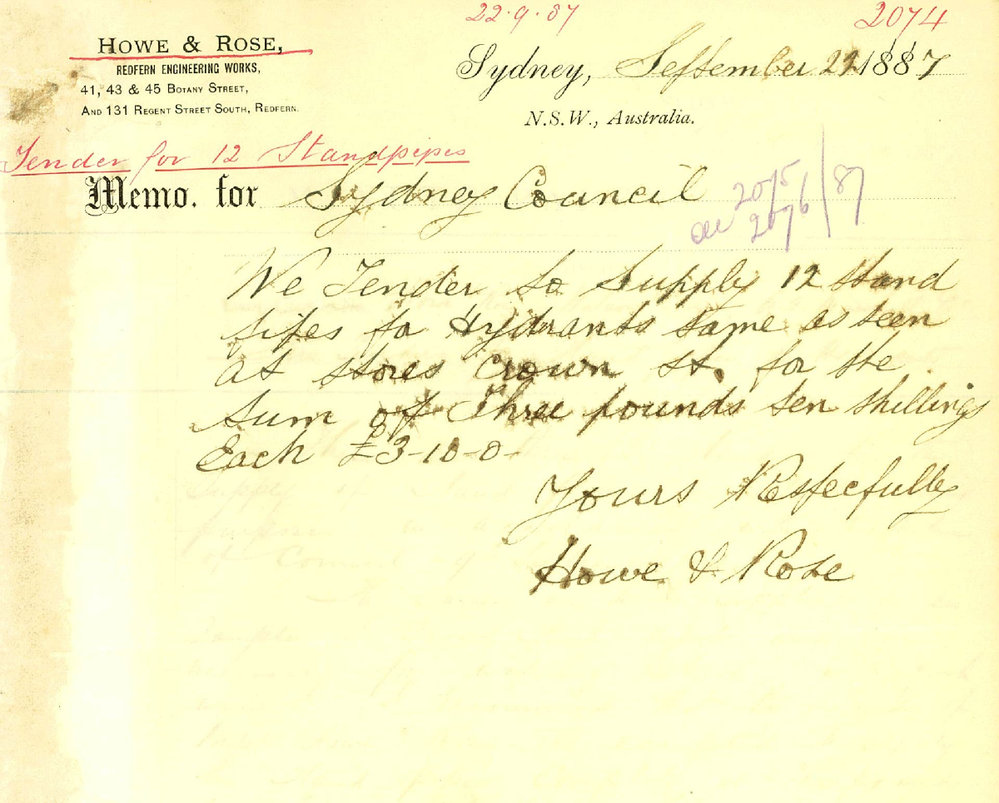 22.9.87
2074
HOWE & ROSE,
REDFERN ENGINEERING WORKS,
41, 43 & 45 BOTANY STREET,
AND 131 REGENT STREET SOUTH, REDFERN.
Sydney, September 22 1887
N.S.W., Australia.
Tender for 12 Standpipes
Memo. for Sydney Council
2075
2076 / 87
We Tender to Supply 12 stand
pipes to Hydrants same as seen
at stores Crown St. for the
sum of Three pounds ten shillings
Each £3-10-0-
Yours Respecfully
Howe & Rose